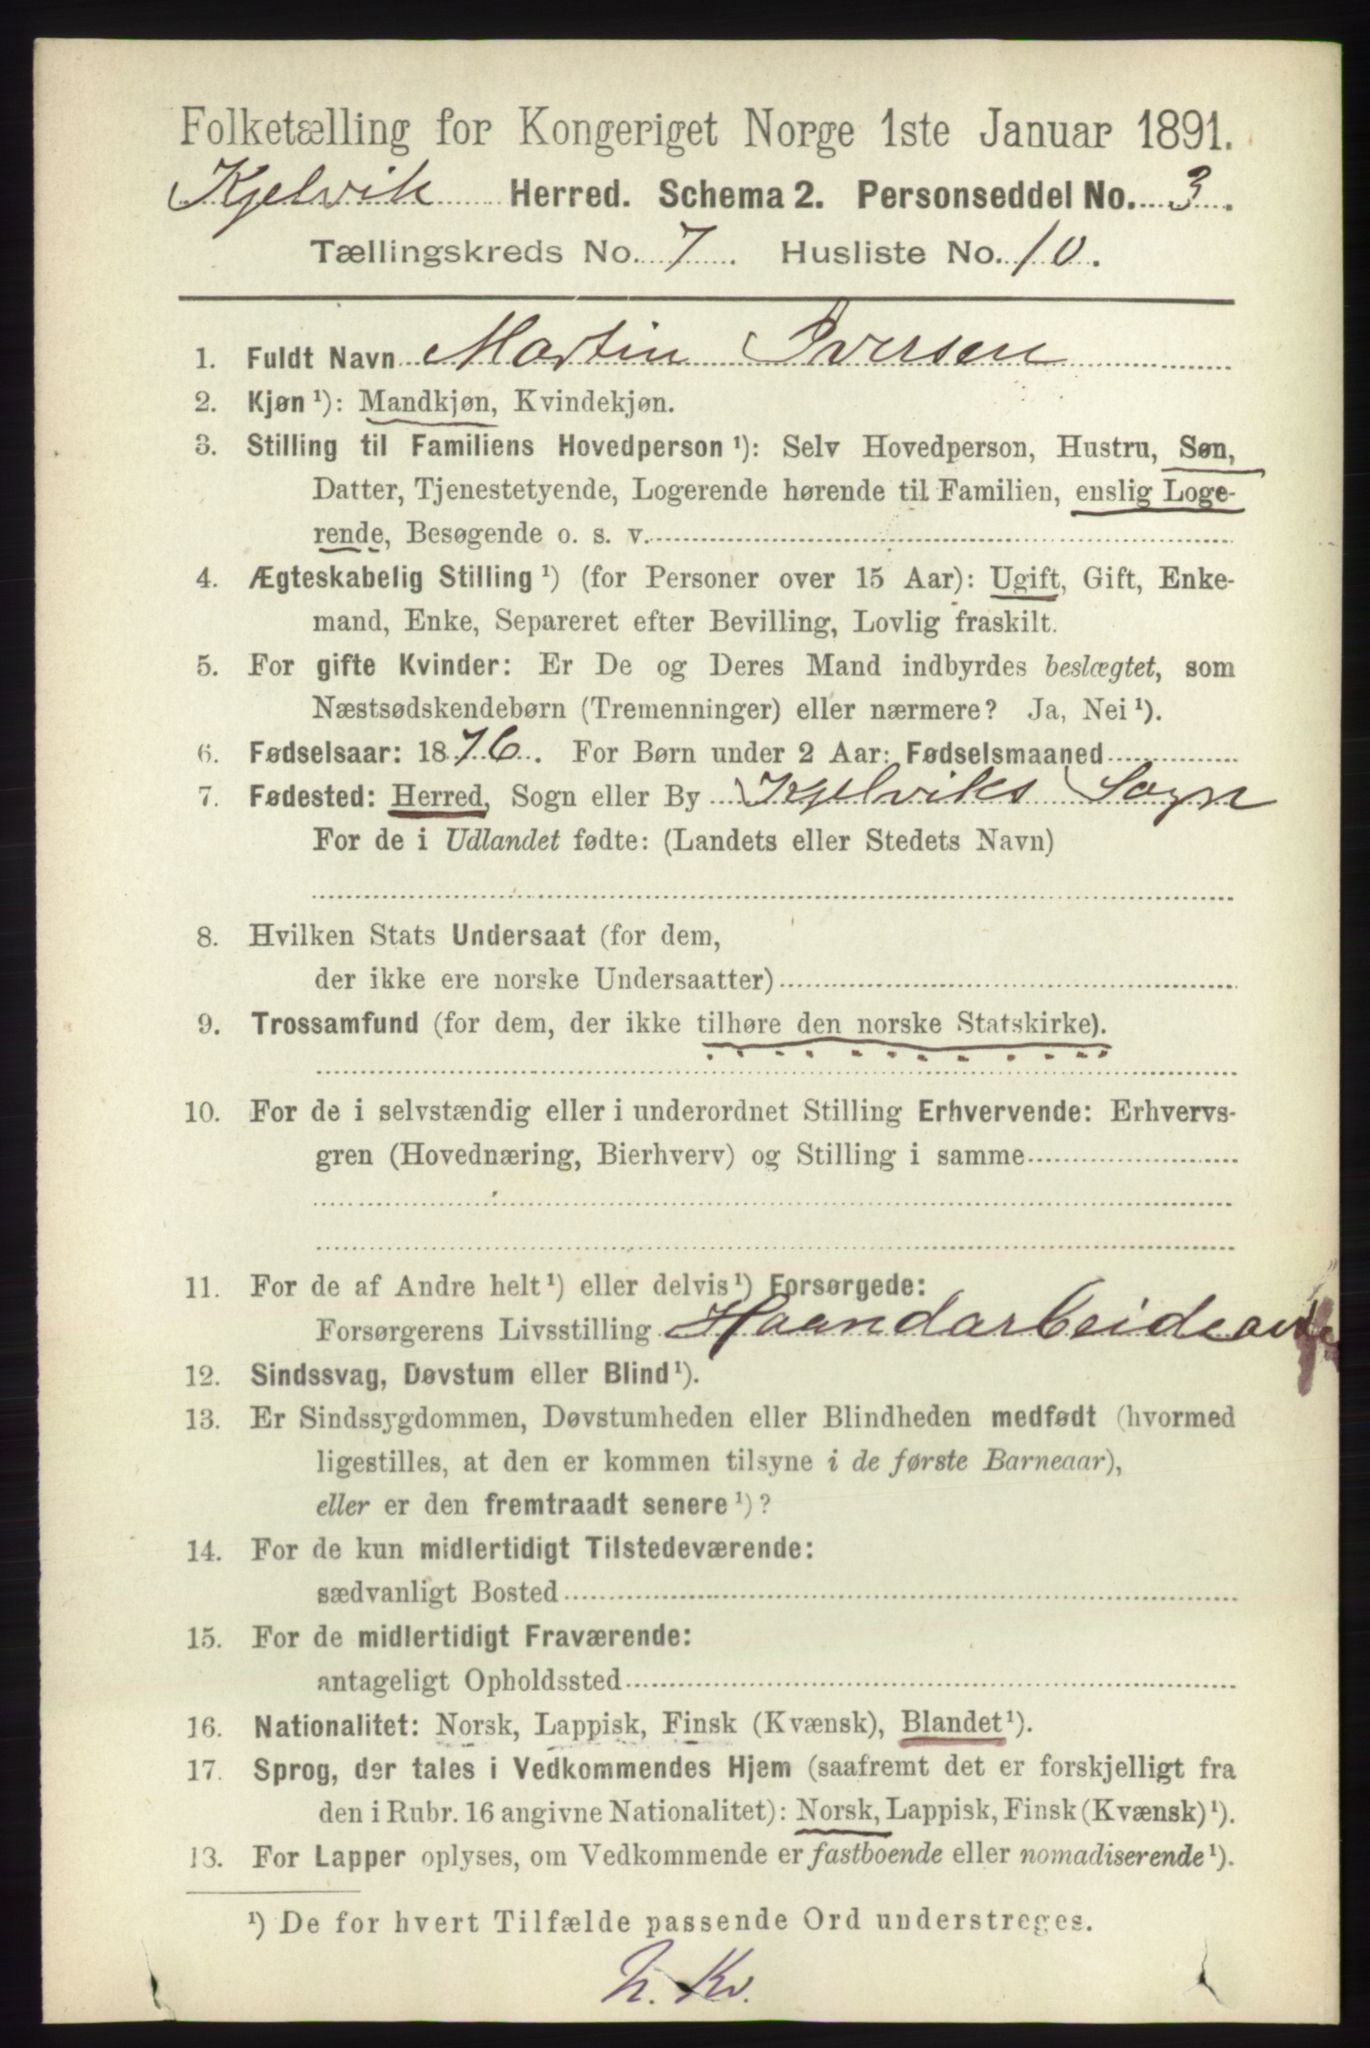 Folketælling for Kongeriget Norge 1ste Januar 1891.
Kjelvik Herred. Schema 2. Personseddel No. 3.
Tællingskreds No. 7. Husliste No. 10.
1. Fuldt Navn Martin Iversen
2. Kjøn ¹): Mandkjøn, Kvindekjøn.
3. Stilling til Familiens Hovedperson ¹): Selv Hovedperson, Hustru, Søn,
Datter, Tjenestetyende, Logerende hørende til Familien, enslig Loge-
rende, Besøgende o. s. v.
4. Ægteskabelig Stilling ¹) (for Personer over 15 Aar): Ugift, Gift, Enke-
mand, Enke, Separeret efter Bevilling, Lovlig fraskilt.
5. For gifte Kvinder: Er De og Deres Mand indbyrdes beslægtet, som
Næstsødskendebørn (Tremenninger) eller nærmere? Ja, Nei ¹).
6. Fødselsaar: 1876. For Børn under 2 Aar: Fødselsmaaned
7. Fødested: Herred, Sogn eller By Kjelviks Sogn
For de i Udlandet fødte: (Landets eller Stedets Navn)
8. Hvilken Stats Undersaat (for dem,
der ikke ere norske Undersaatter)
9. Trossamfund (for dem, der ikke tilhøre den norske Statskirke).
10. For de i selvstændig eller i underordnet Stilling Erhvervende: Erhvervs-
gren (Hovednæring, Bierhverv) og Stilling i samme
11. For de af Andre helt ¹) eller delvis ¹) Forsørgede:
Forsørgerens Livsstilling
12. Sindssvag, Døvstum eller Blind ¹).
13. Er Sindssygdommen, Døvstumheden eller Blindheden medfødt (hvormed
ligestilles, at den er kommen tilsyne i de første Barneaar),
eller er den fremtraadt senere ¹)?
14. For de kun midlertidigt Tilstedeværende:
sædvanligt Bosted
15. For de midlertidigt Fraværende:
antageligt Opholdssted
16. Nationalitet: Norsk, Lappisk, Finsk (Kvænsk), Blandet ¹).
17. Sprog, der tales i Vedkommendes Hjem (saafremt det er forskjelligt fra
den i Rubr. 16 angivne Nationalitet): Norsk, Lappisk, Finsk (Kvænsk) ¹).
13. For Lapper oplyses, om Vedkommende er fastboende eller nomadiserende ¹).
¹) De for hvert Tilfælde passende Ord understreges.
Kv.